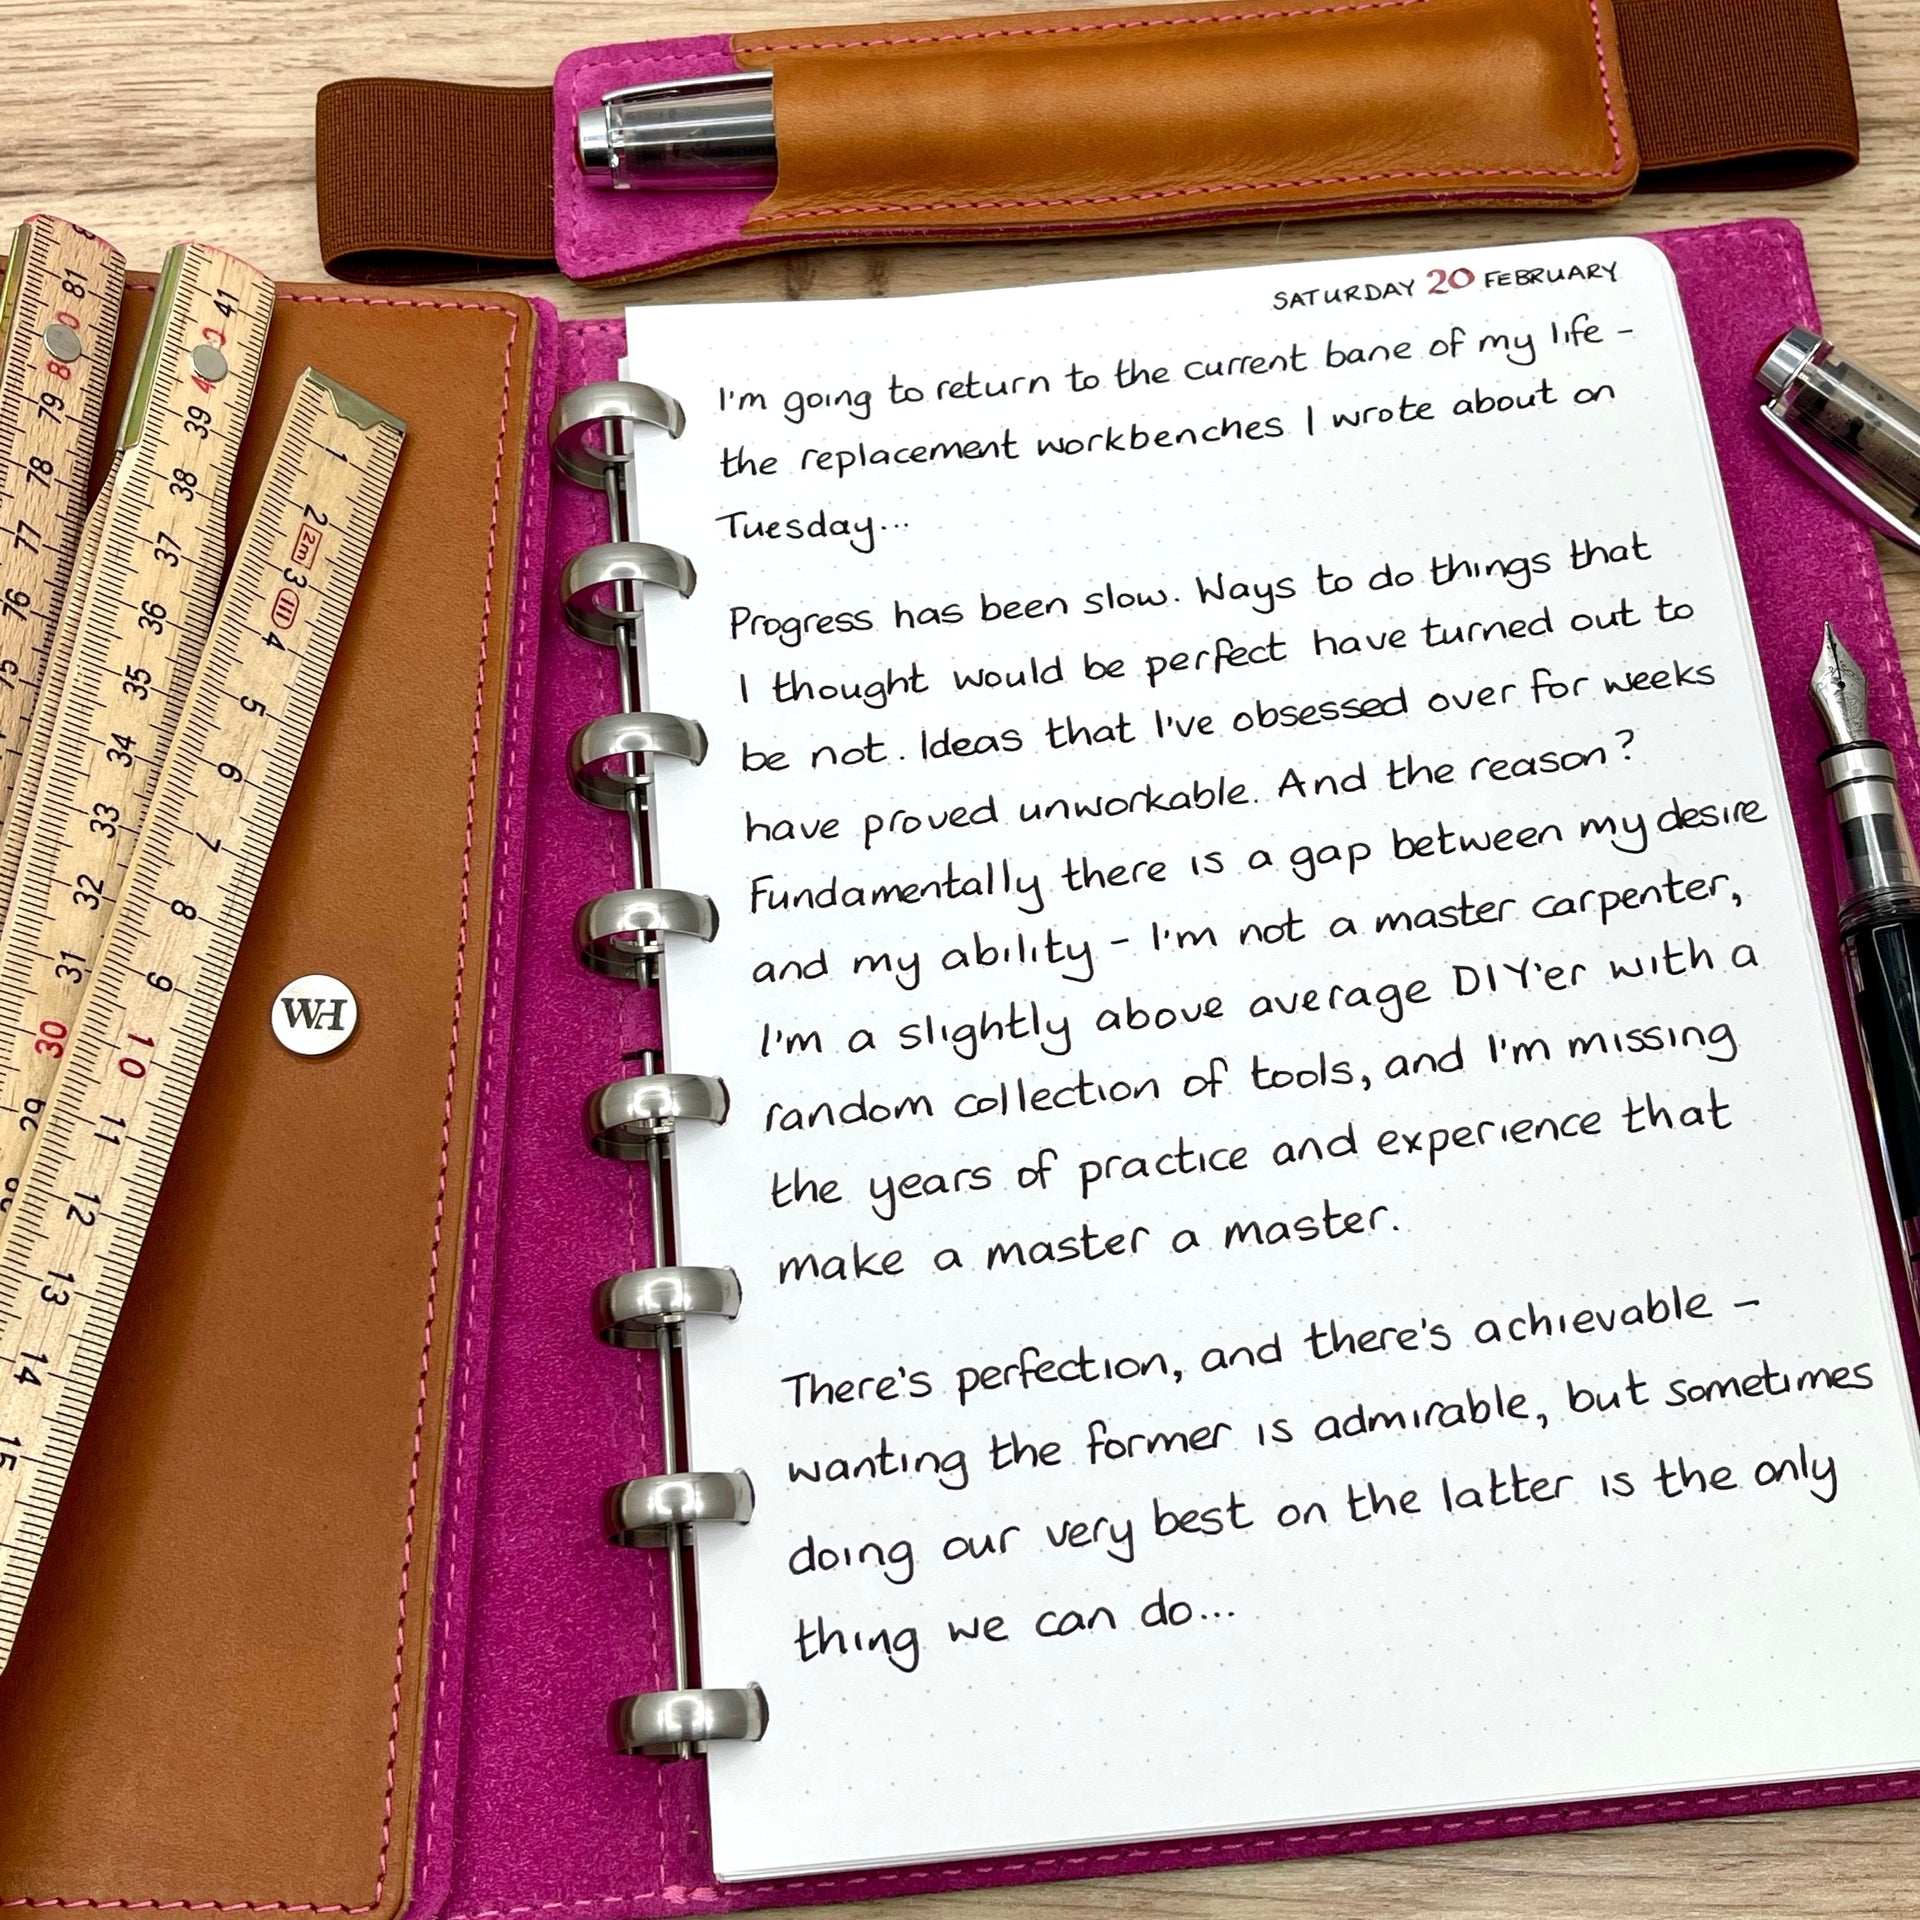 SATURDAY 20 FEBRUARY
I'm going to return to the current bane of my life -
the replacement workbenches I wrote about on
Tuesday...
Progress has been slow. Ways to do things that
I thought would be perfect have turned out to
be not. Ideas that I've obsessed over for weeks
have proved unworkable. And the reason?
Fundamentally there is a gap between my desire
and my ability - I'm not a master carpenter,
I'm a slightly above average DIY'er with a
random collection of tools, and I'm missing
the years of practice and experience that
make a master a master.
There's perfection, and there's achievable -
wanting the former is admirable, but sometimes
doing our very best on the latter is the only
thing we can do...
WH
81
80
79
78
77
76
75
41
40
39
38
37
36
35
34
33
32
31
30
29
1
2
2m
3
III
4
5
6
7
8
9
10
11
12
13
14
15